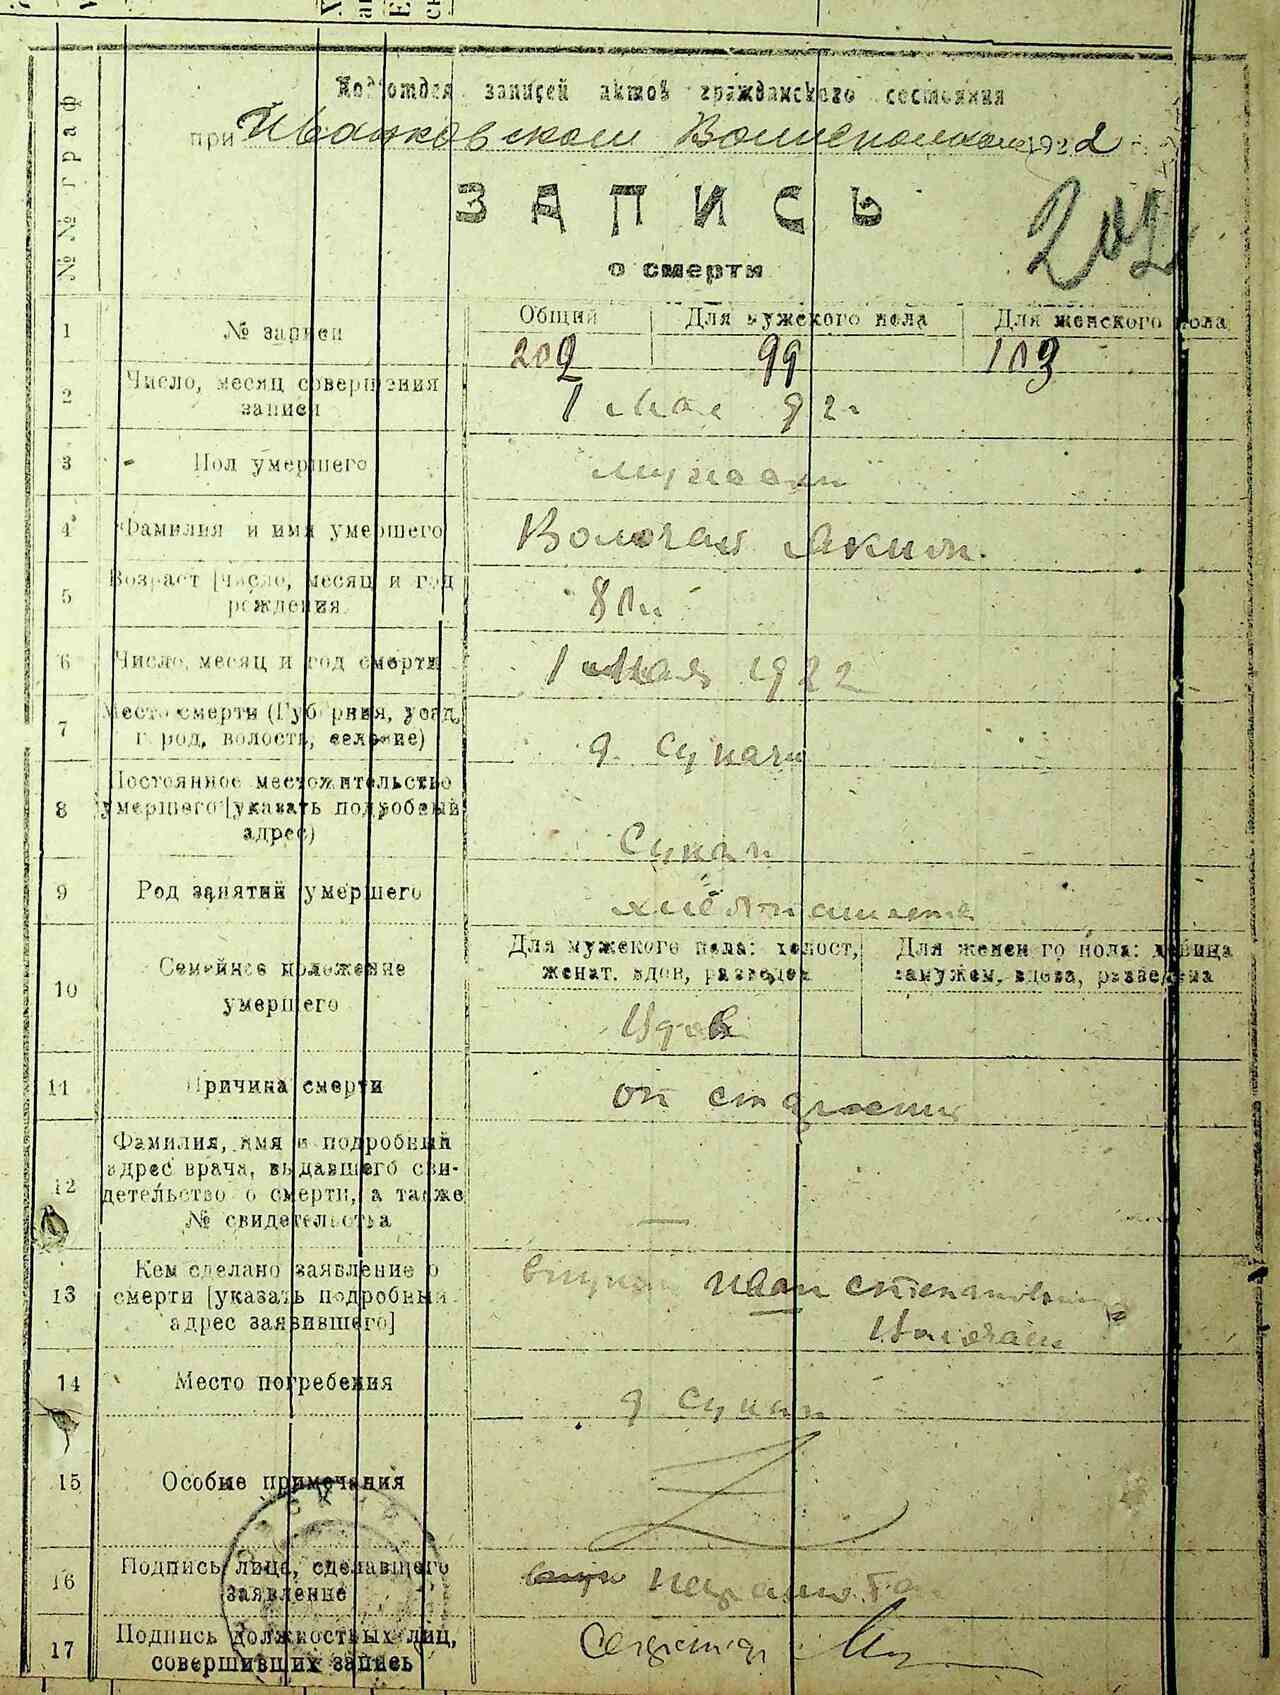 №№ граф
Подотдел записей актов гражданского состояния
при Иванковском Волисполкоме 1922 г.
ЗАПИСЬ
202
о смерти
1 № записи Общий Для мужского пола Для женского пола
202 99 103
2 Число, месяц совершения
записи
1 Мая 922
3 Пол умершего мужской
4 Фамилия и имя умершего Волочай Яким
5 Возраст [число, месяц и год
рождения
80 л
6 Число, месяц и год смерти 1 Мая 1922
7 Место смерти (Губерния, уезд,
город, волость, селение)
д. Сукачи
8 Постоянное местожительство
умершего [указать подробный
адрес)
Сукачи
9 Род занятий умершего хлебопашество
10 Семейное положение
умершего
Для мужского пола: холост,
женат, вдов, разведен
Для женского пола: девица
замужем, вдова, разведена
Вдов
11 Причина смерти от старости
12 Фамилия, имя и подробный
адрес врача, выдавшего сви-
детельство о смерти, а также
№ свидетельства
—
13 Кем сделано заявление о
смерти [указать подробный
адрес заявившего]
внуком Иван Степанович
Волочай
14 Место погребения д Сукачи
15 Особые примечания
16 Подпись лица, сделавшего
заявление
неграмотн
17 Подпись должностных лиц,
совершивших запись
Секретарь